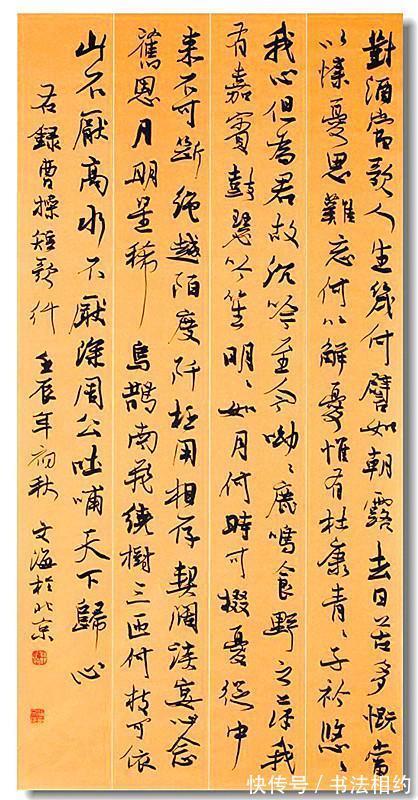 對酒當歌人生幾何譬如朝露去日苦多慨當
以慷憂思難忘何以解憂惟有杜康青々子衿悠々
我心但為君故沉吟至今呦々鹿鳴食野之苹我
有嘉賓鼓瑟吹笙明々如月何時可掇憂從中
来不可斷絕越陌度阡枉用相存契闊談宴心念
舊恩月明星稀烏鵲南飛繞樹三匝何枝可依
山不厭高水不厭深周公吐哺天下歸心
右錄曹操短歌行壬辰年初秋文海於北京
快传号 / 书法相约